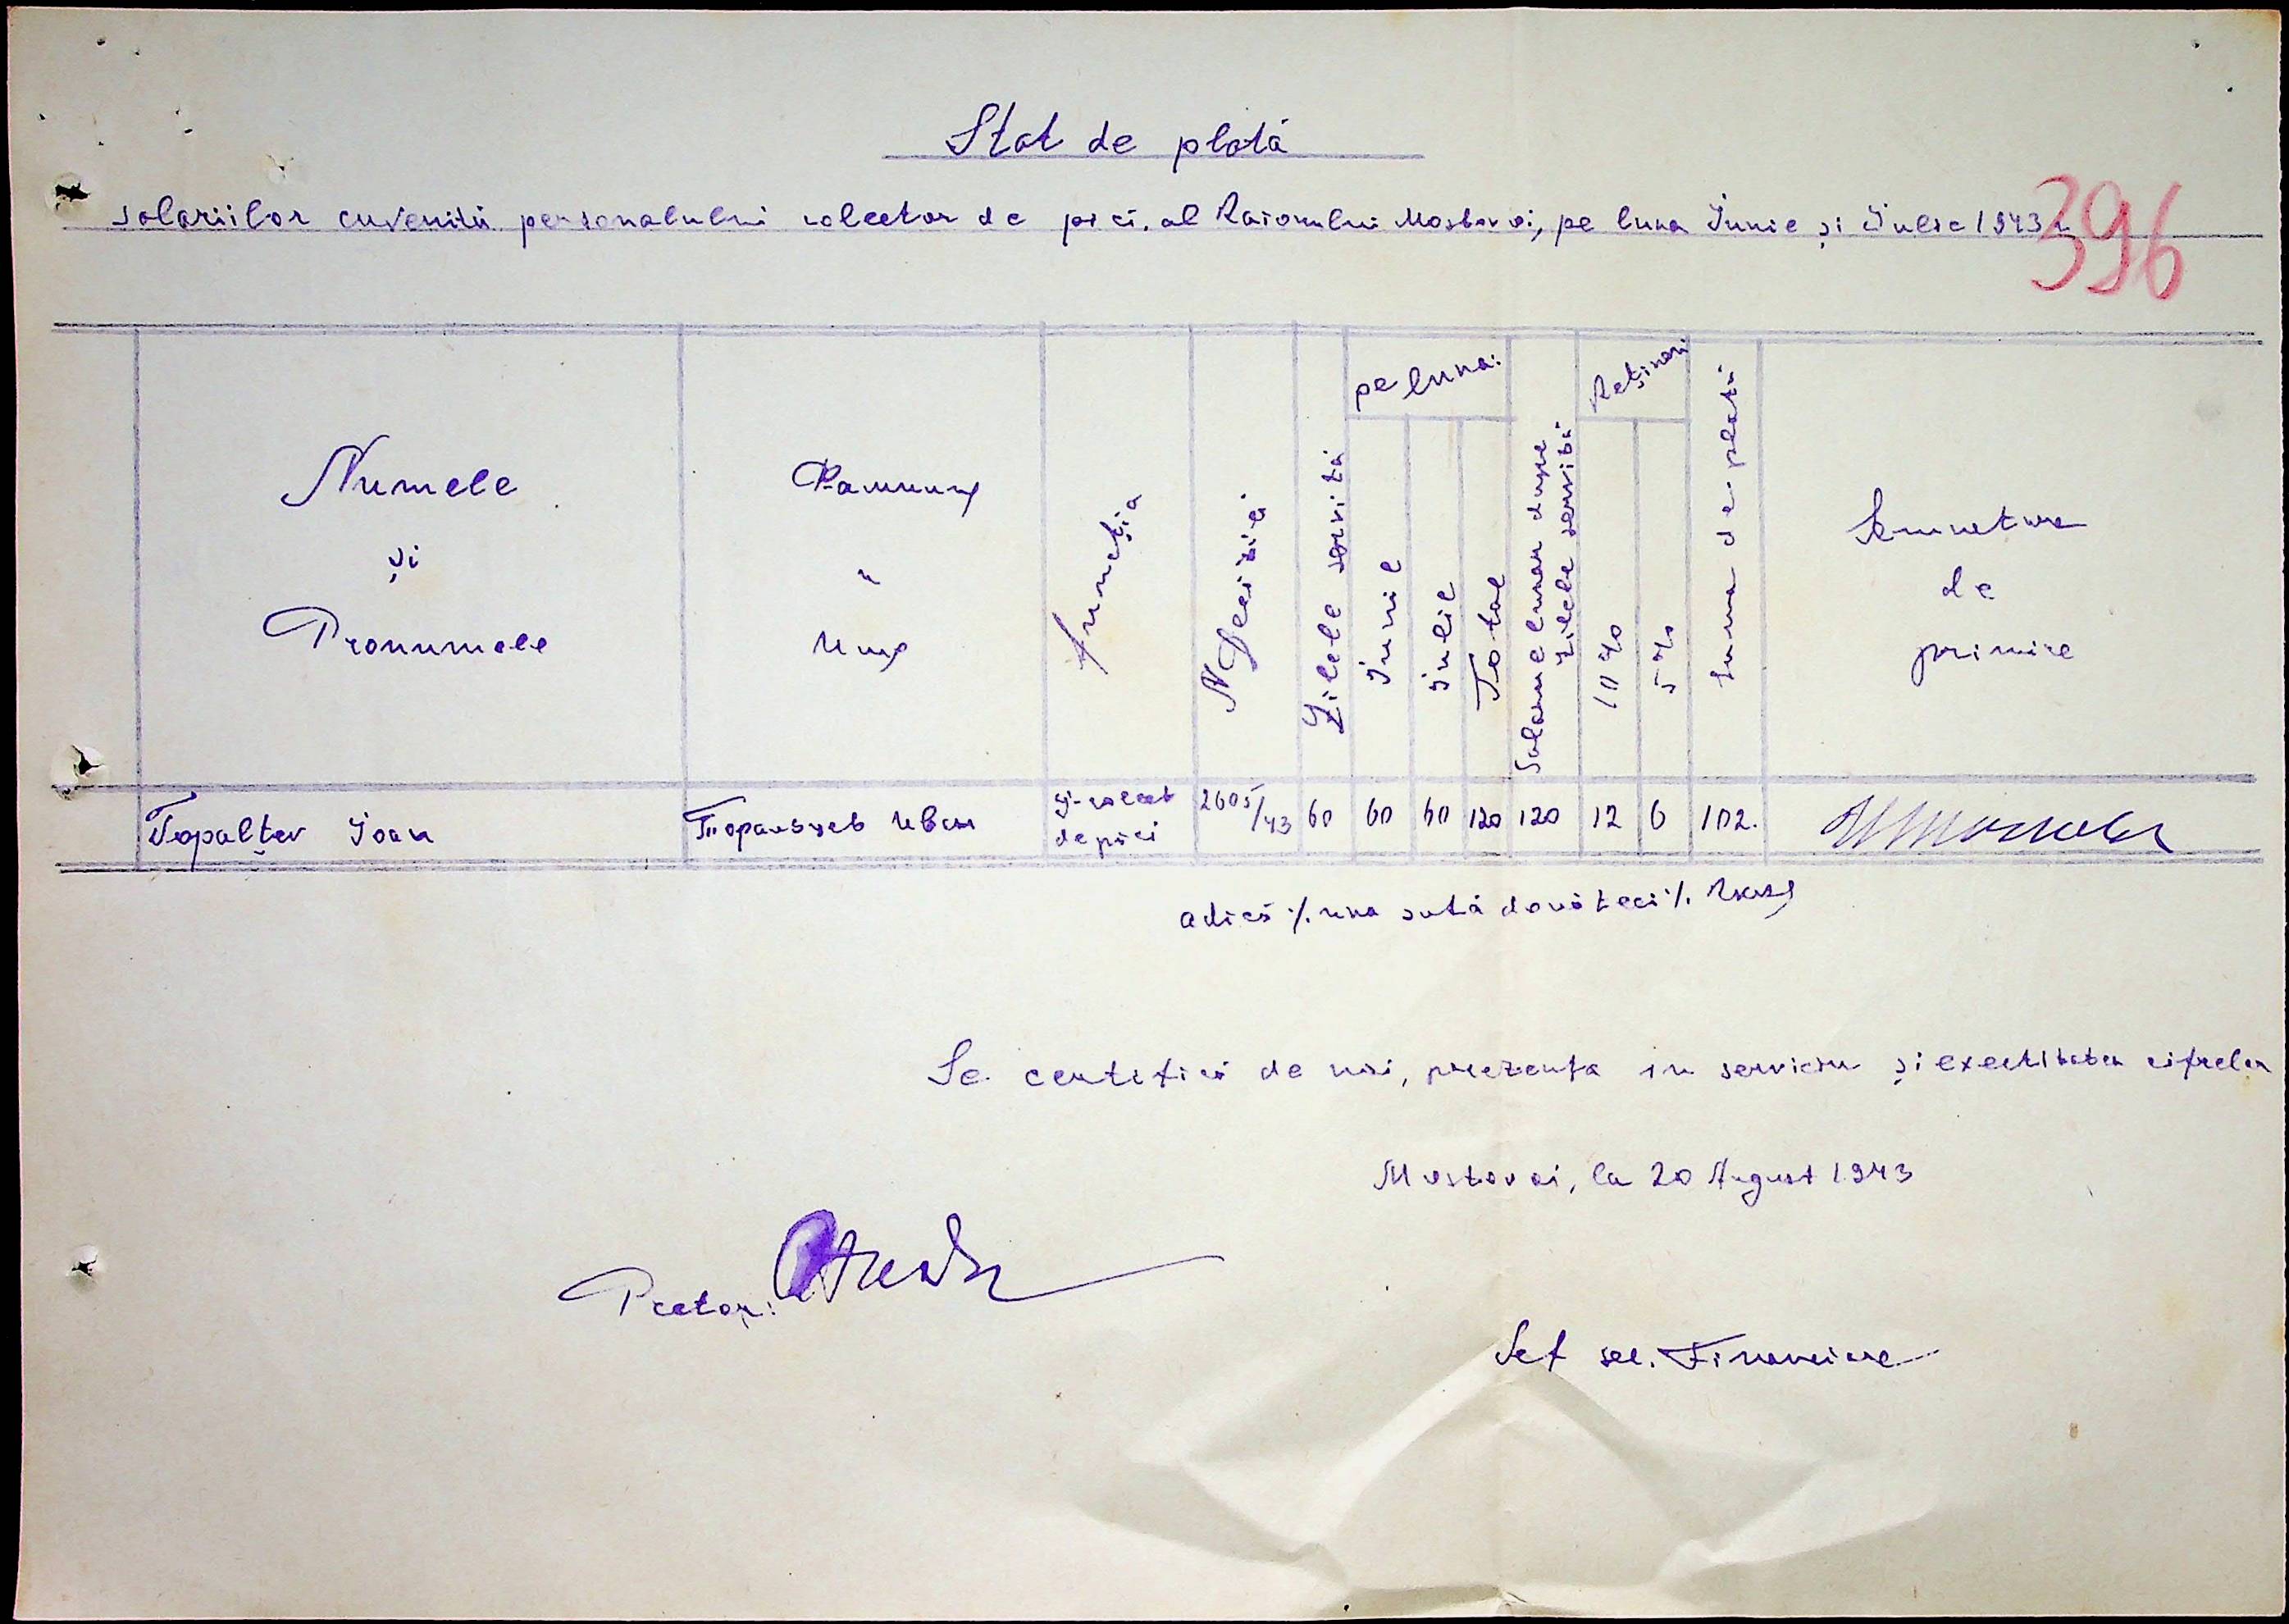 Stat de plată
396
salariilor cuvenită personalului colector de piei, al Raionului Mostovoi, pe luna Iunie și Iulie 1943
Numele
și
Pronumele
Фамилия
и
Имя
Funcția
N Decizie
Zilele servită
pe luna:
Iunie
Iulie
Total
Salarul lunar după
zilele servită
Rețineri
10 %
5 %
Suma de plată
Semnetura
de
primire
Topalțev Ioan
Топальцев Иван
colect
de piei
2605/43
60
60
60
120
120
12
6
102.
adică %. una sută două zeci %.
Se certifică de noi, prezența in serviciu și exectitatea cifrelor
Mostovoi, la 20 August 1943
Pretor:
Șef sec. Financiare